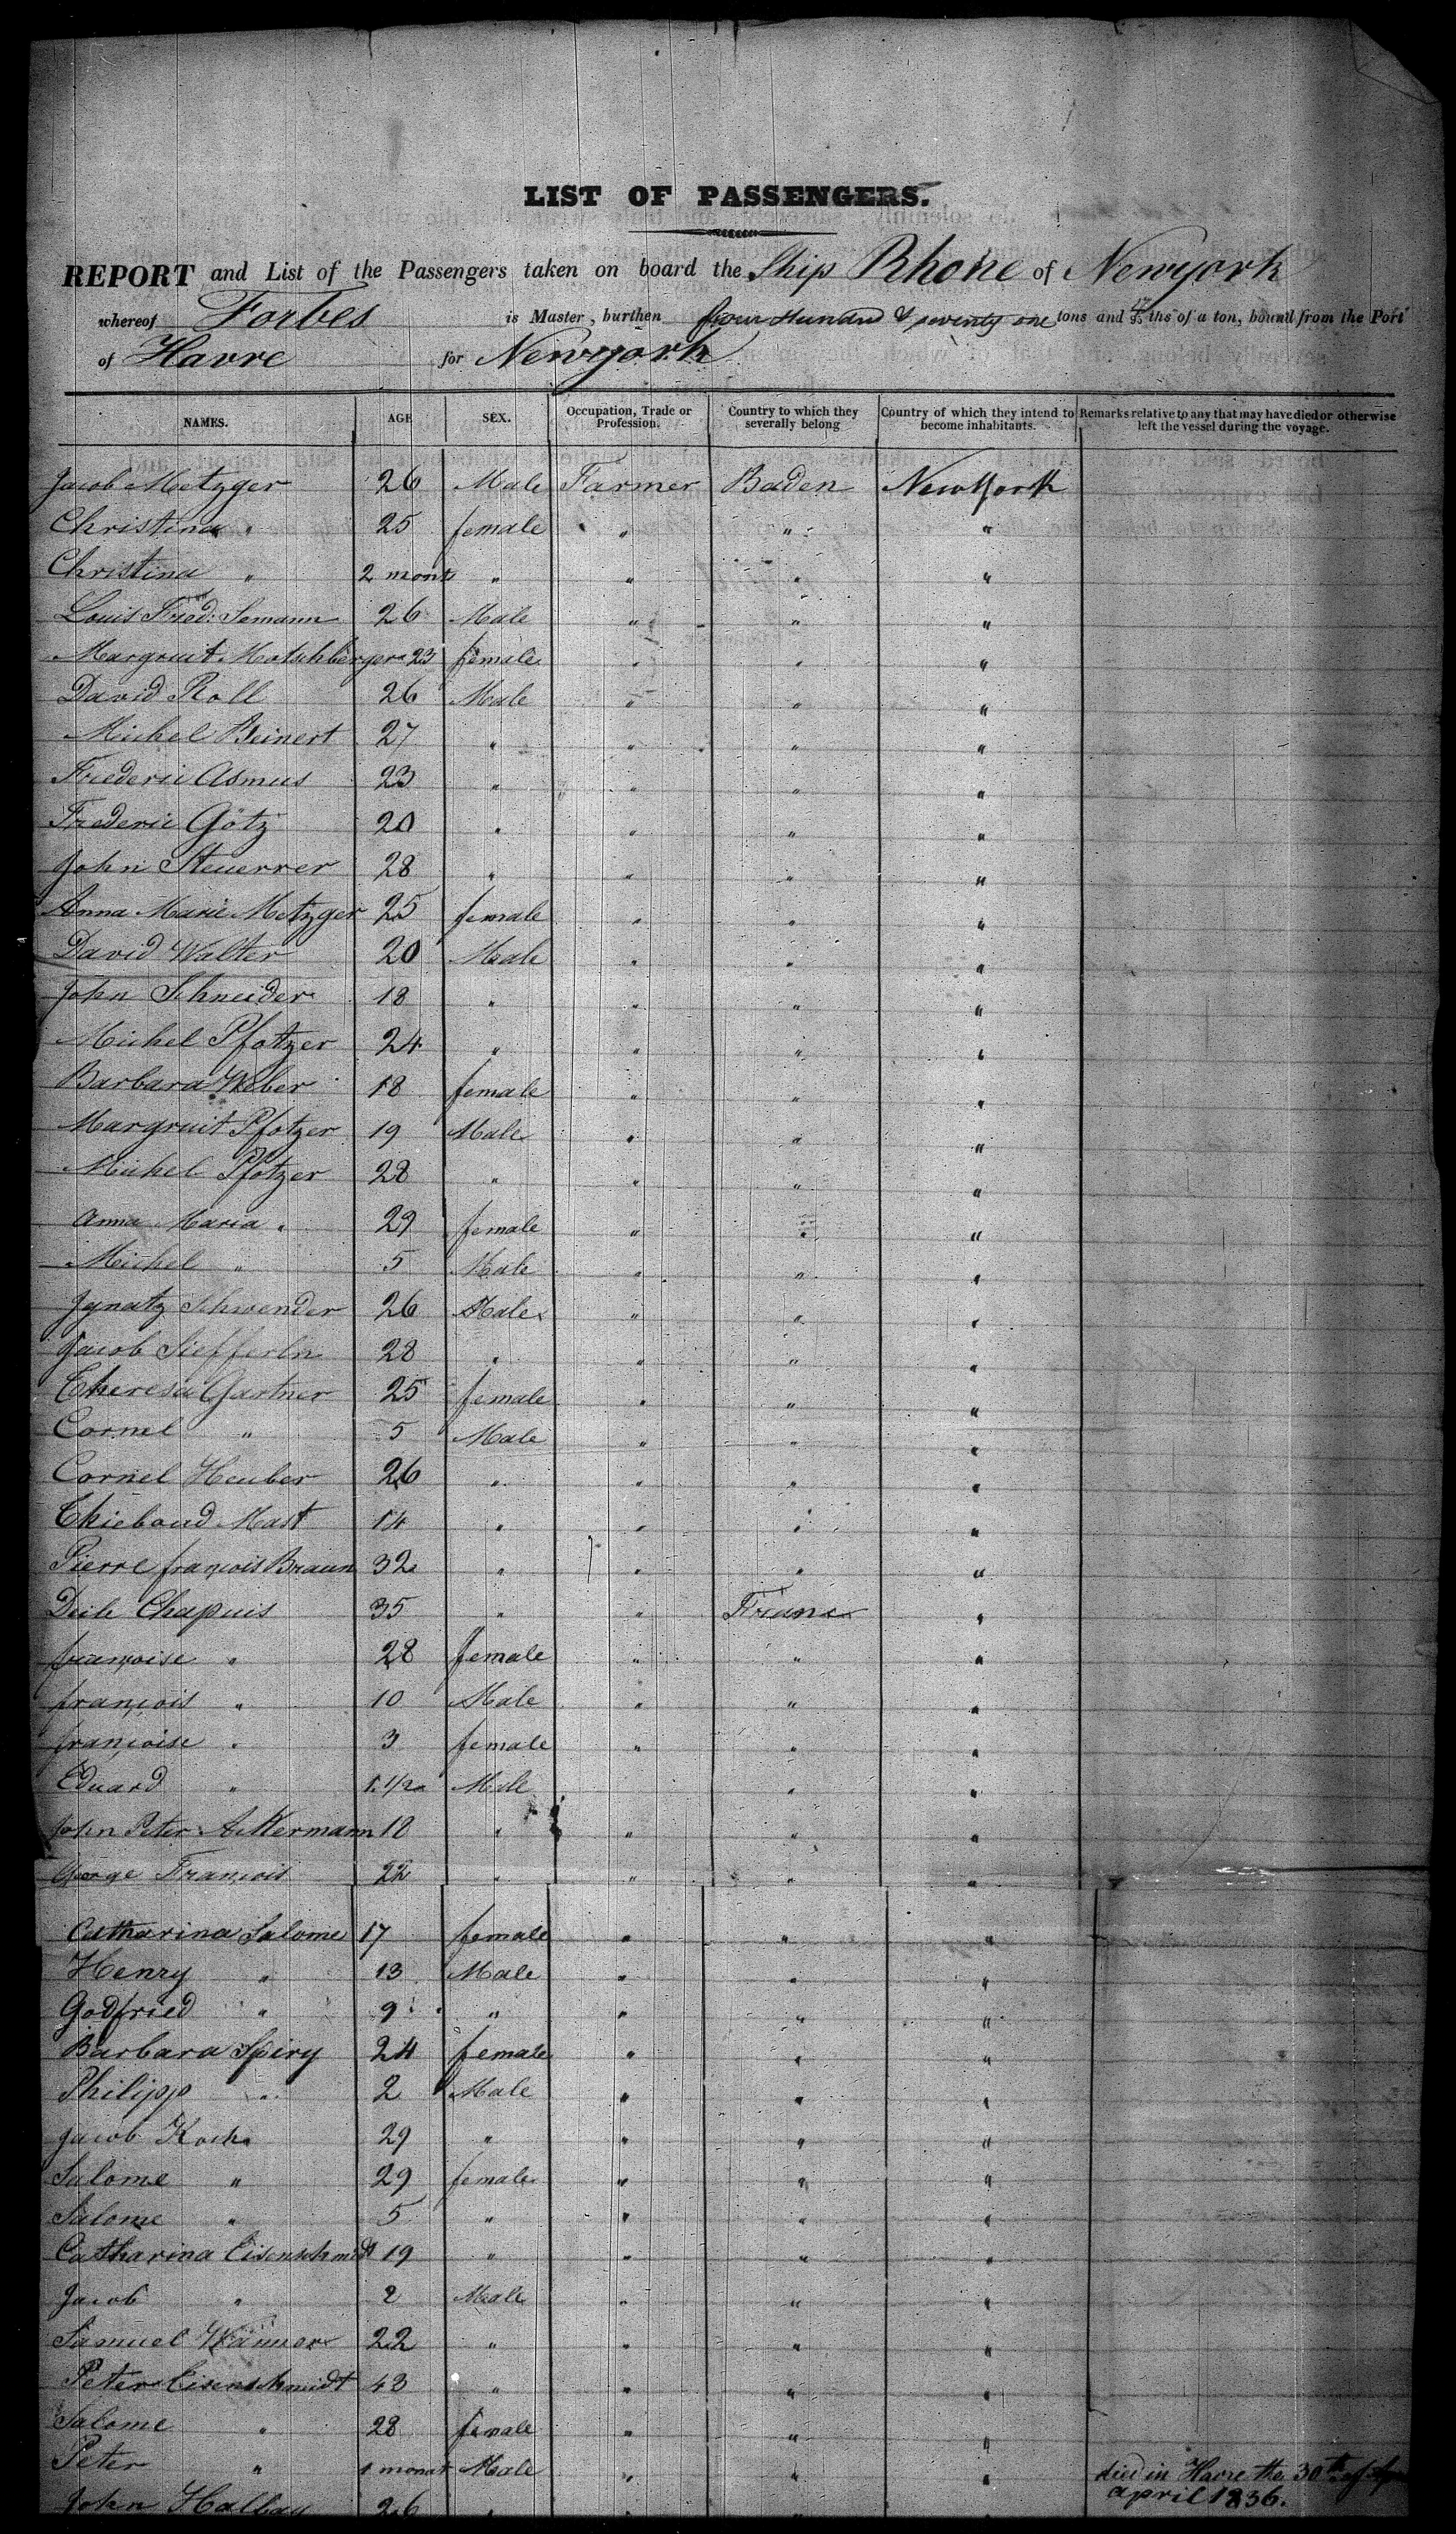 LIST OF PASSENGERS.
REPORT and List of the Passengers taken on board the Ship Rhone of Newyork
whereof Forbes is Master, burthen four Hundred & seventy one tons and 17/95 ths of a ton, bound from the Port
of Havre for Newyork
NAMES. AGE SEX. Occupation, Trade or Profession. Country to which they severally belong Country of which they intend to become inhabitants. Remarks relative to any that may have died or otherwise left the vessel during the voyage.
Jacob Metzger 26 Male Farmer Baden New York
Christina " 25 female " " "
Christina " 2 mont " " " "
Louis Fred: Semann 26 Male " " "
Margruit Motschberger 23 female " " "
David Roll 26 Male " " "
Michel Beinert 27 " " " "
Frederic Asmus 23 " " " "
Frederic Götz 20 " " " "
John Steuerrer 28 " " " "
Anna Marie Metzger 25 female " " "
David Walter 20 Male " " "
John Schneider 18 " " " "
Michel Pfotzer 24 " " " "
Barbara Weber 18 female " " "
Margruit Pfotzer 19 Male " " "
Michel Pfotzer 28 " " " "
Anna Maria " 29 female " " "
Michel " 5 Male " " "
Jgnatz Schwender 26 Male " " "
Jacob Siefferln 28 " " " "
Theresa Gartner 25 female " " "
Cornel " 5 Male " " "
Cornel Heuber 26 " " " "
Thiebaud Mast 14 " " " "
Pierre françois Braun 32 " " " "
Chapuis 35 " " France "
françoise " 28 female " " "
françois " 10 Male " " "
françoise " 3 female " " "
Eduard " 1.1/2 Male " "
John Peter Akermann " " " "
George François 22 " " " "
Catharina Salome 17 female " " "
Henry " 13 Male " " "
Godfried " 9 " " " "
Barbara Spiry 24 female " " "
Philipp " 2 Male " " "
Jacob Koch 29 " " " "
Salome " 29 female " " "
Salome " 5 " " " "
Catharina Eisenschmidt 19 " " " "
Jacob " 2 Male " " "
Samuel Wanner 22 " " " "
Peter Eisenschmidt 43 " " " "
Salome " 28 female " " "
Peter " 1 monat Male " " " died in Havre the 30th of
april 1836.
John Halbau 26 " " " "